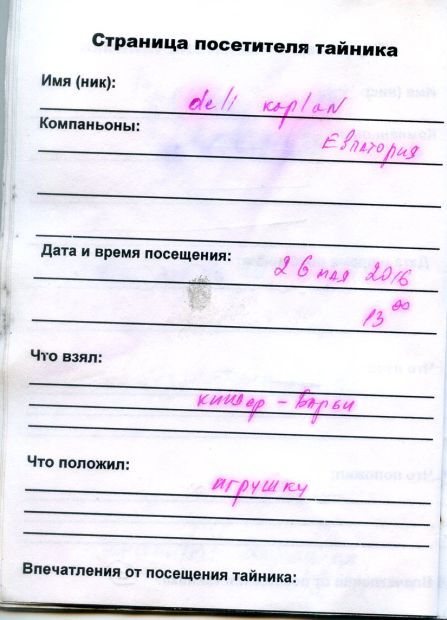 Страница посетителя тайника
Имя (ник):
deli kaplan
Компаньоны:
Евпатория
Дата и время посещения:
26 мая 2016
13 00
Что взял:
киндер - барби
Что положил:
игрушку
Впечатления от посещения тайника: